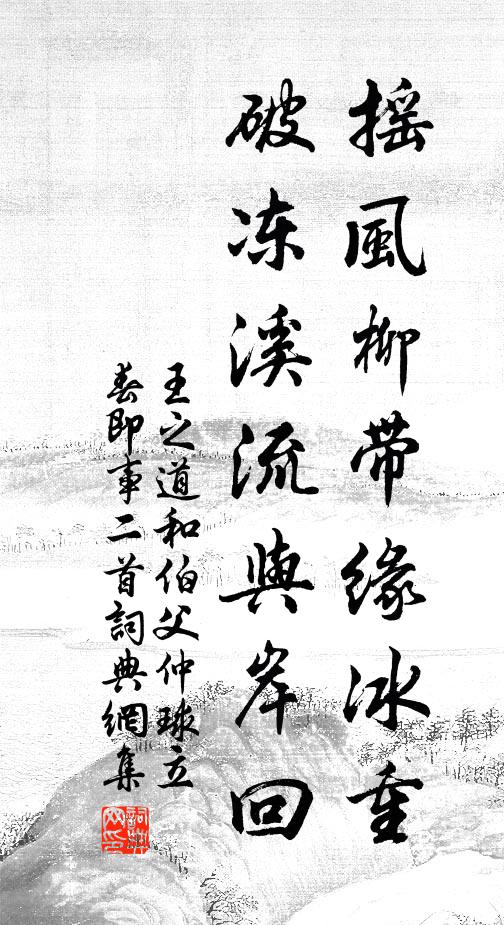 摇風柳带缘冰重
破冻溪流與岸回
王之道和伯父仲球立
春即事二首詞典網集
詞典
网